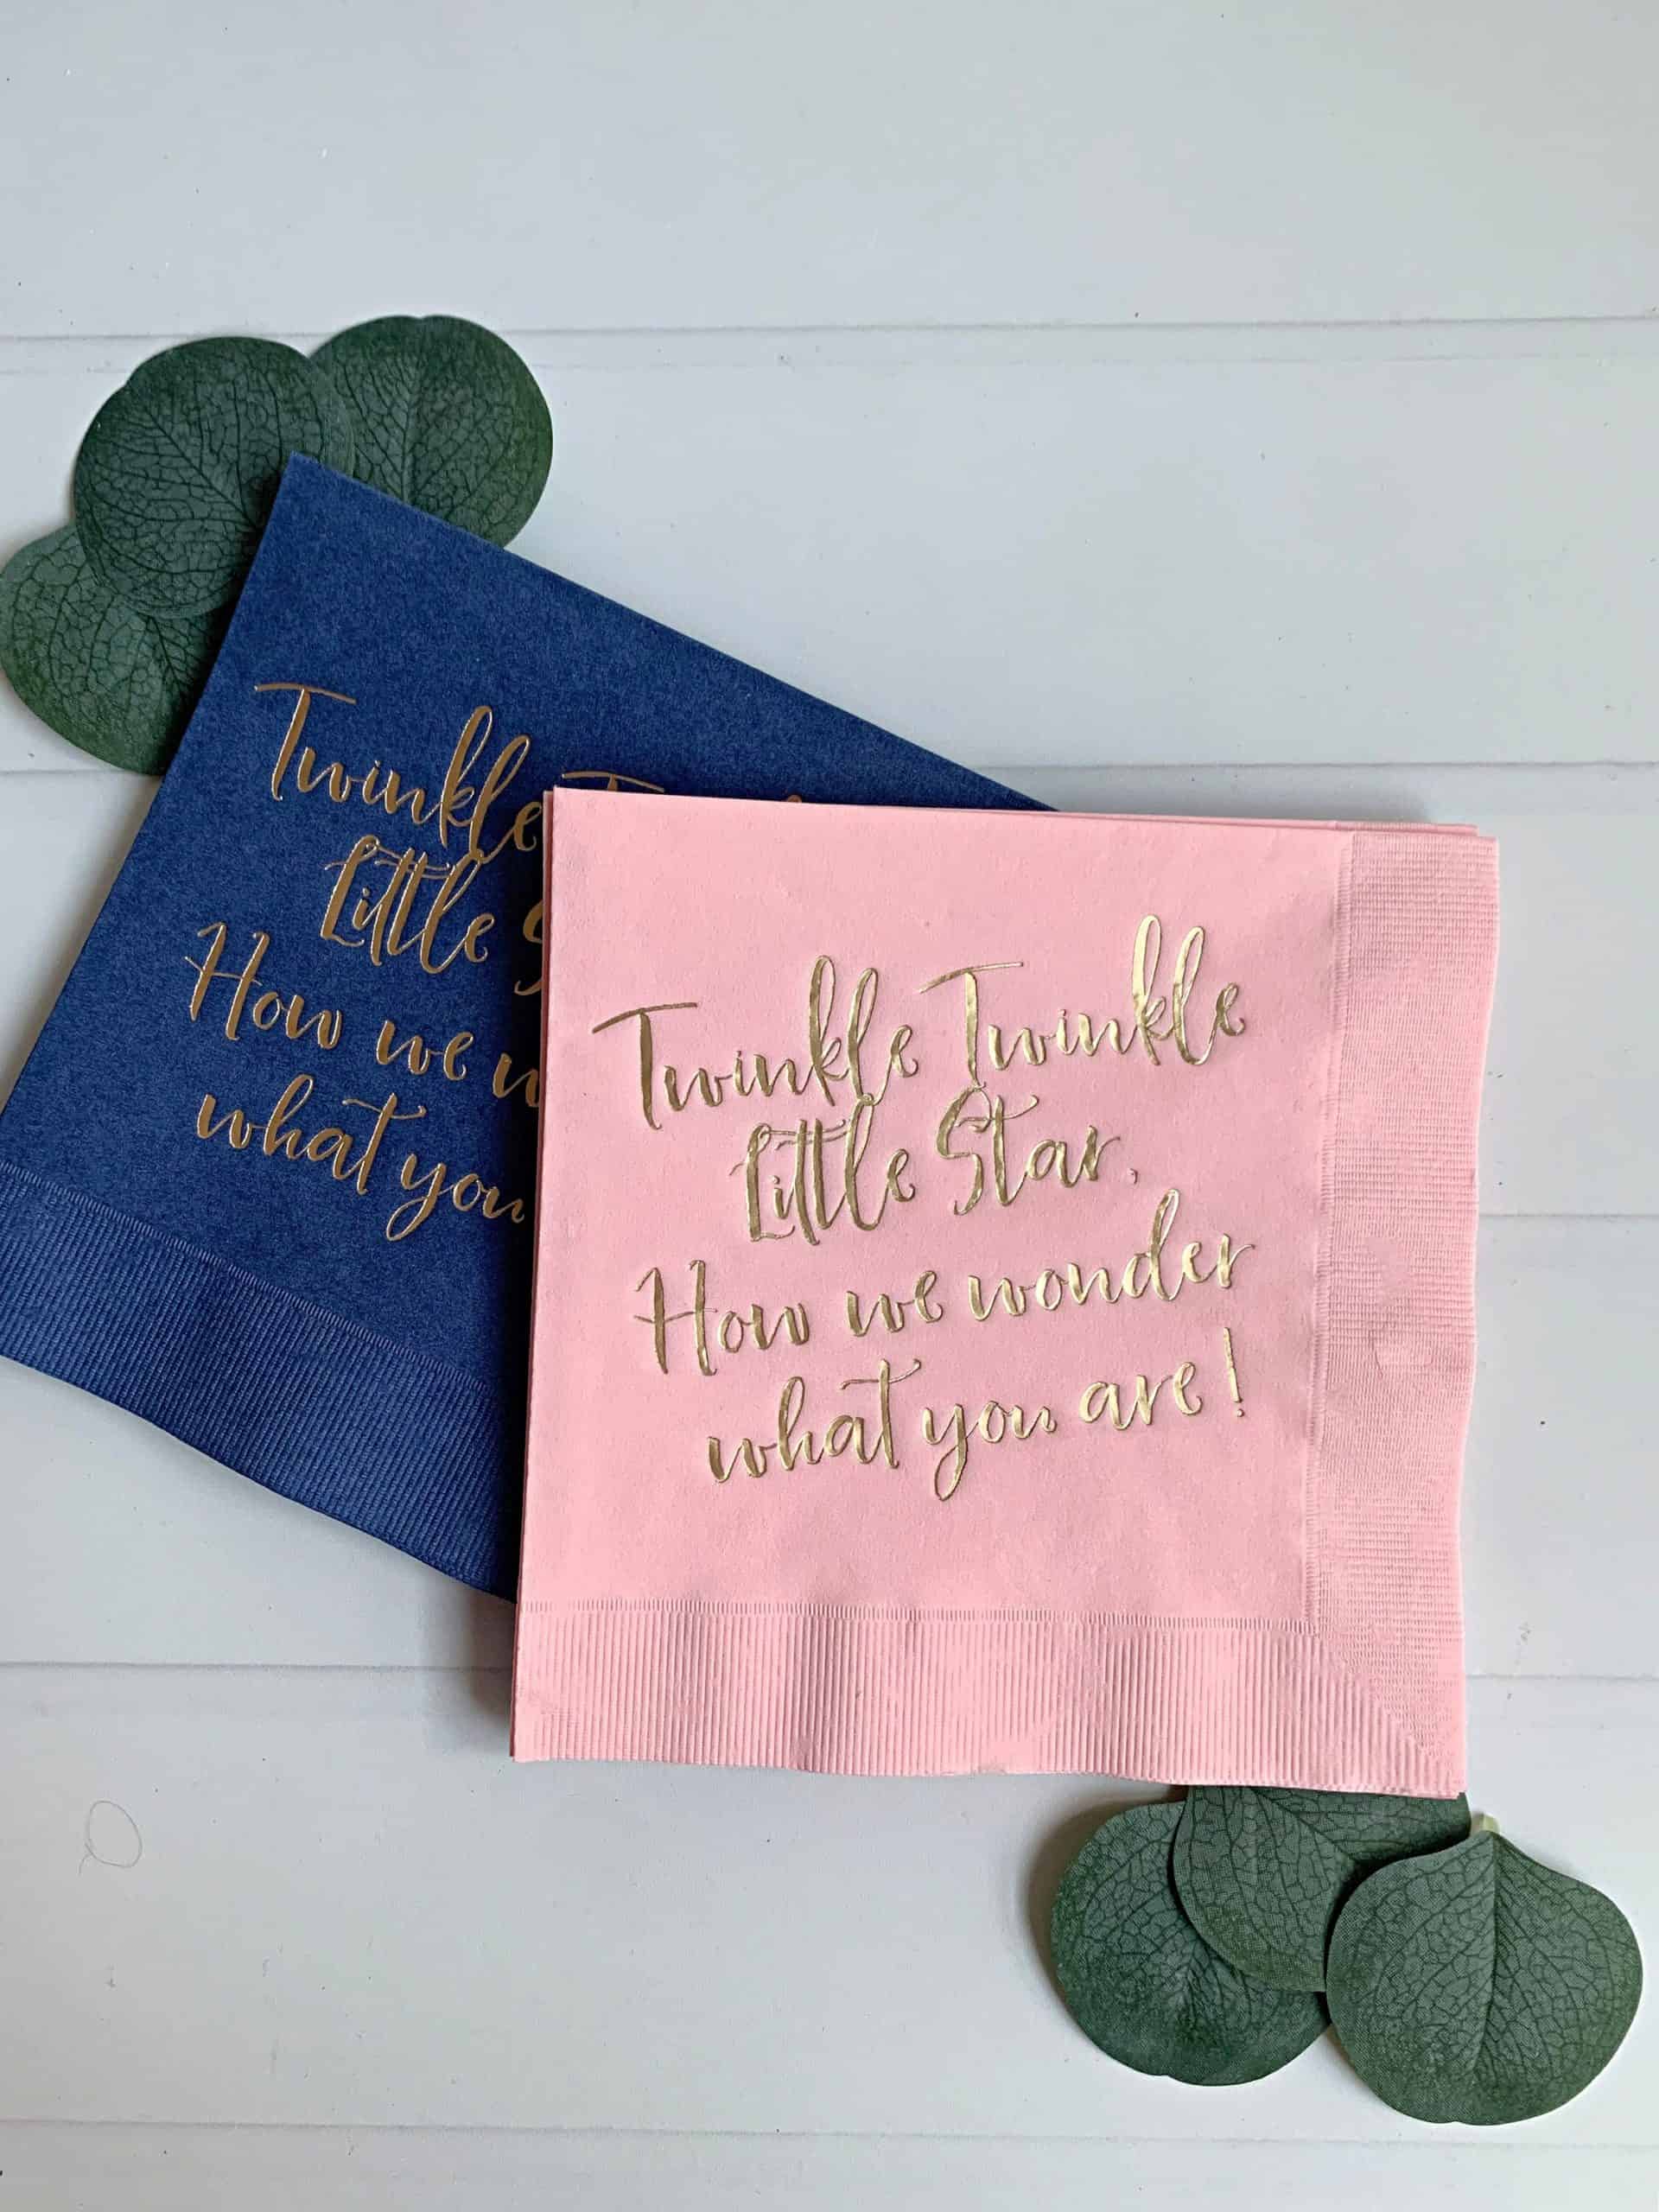 Twinkle
Little
How we
what you
Twinkle Twinkle
Little Star,
How we wonder
what you are!